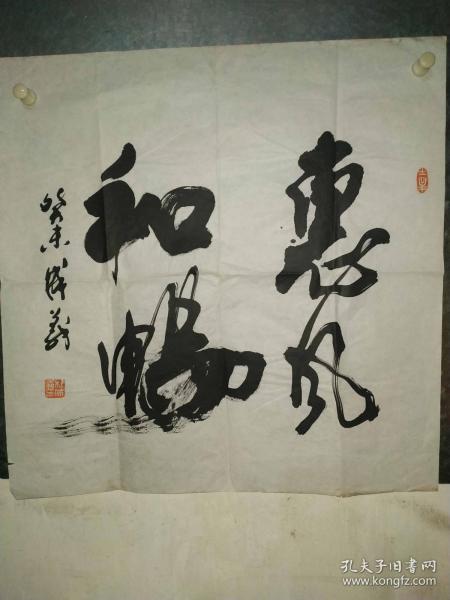 惠风
和畅
癸未
孔夫子旧书网
www.kongfz.com